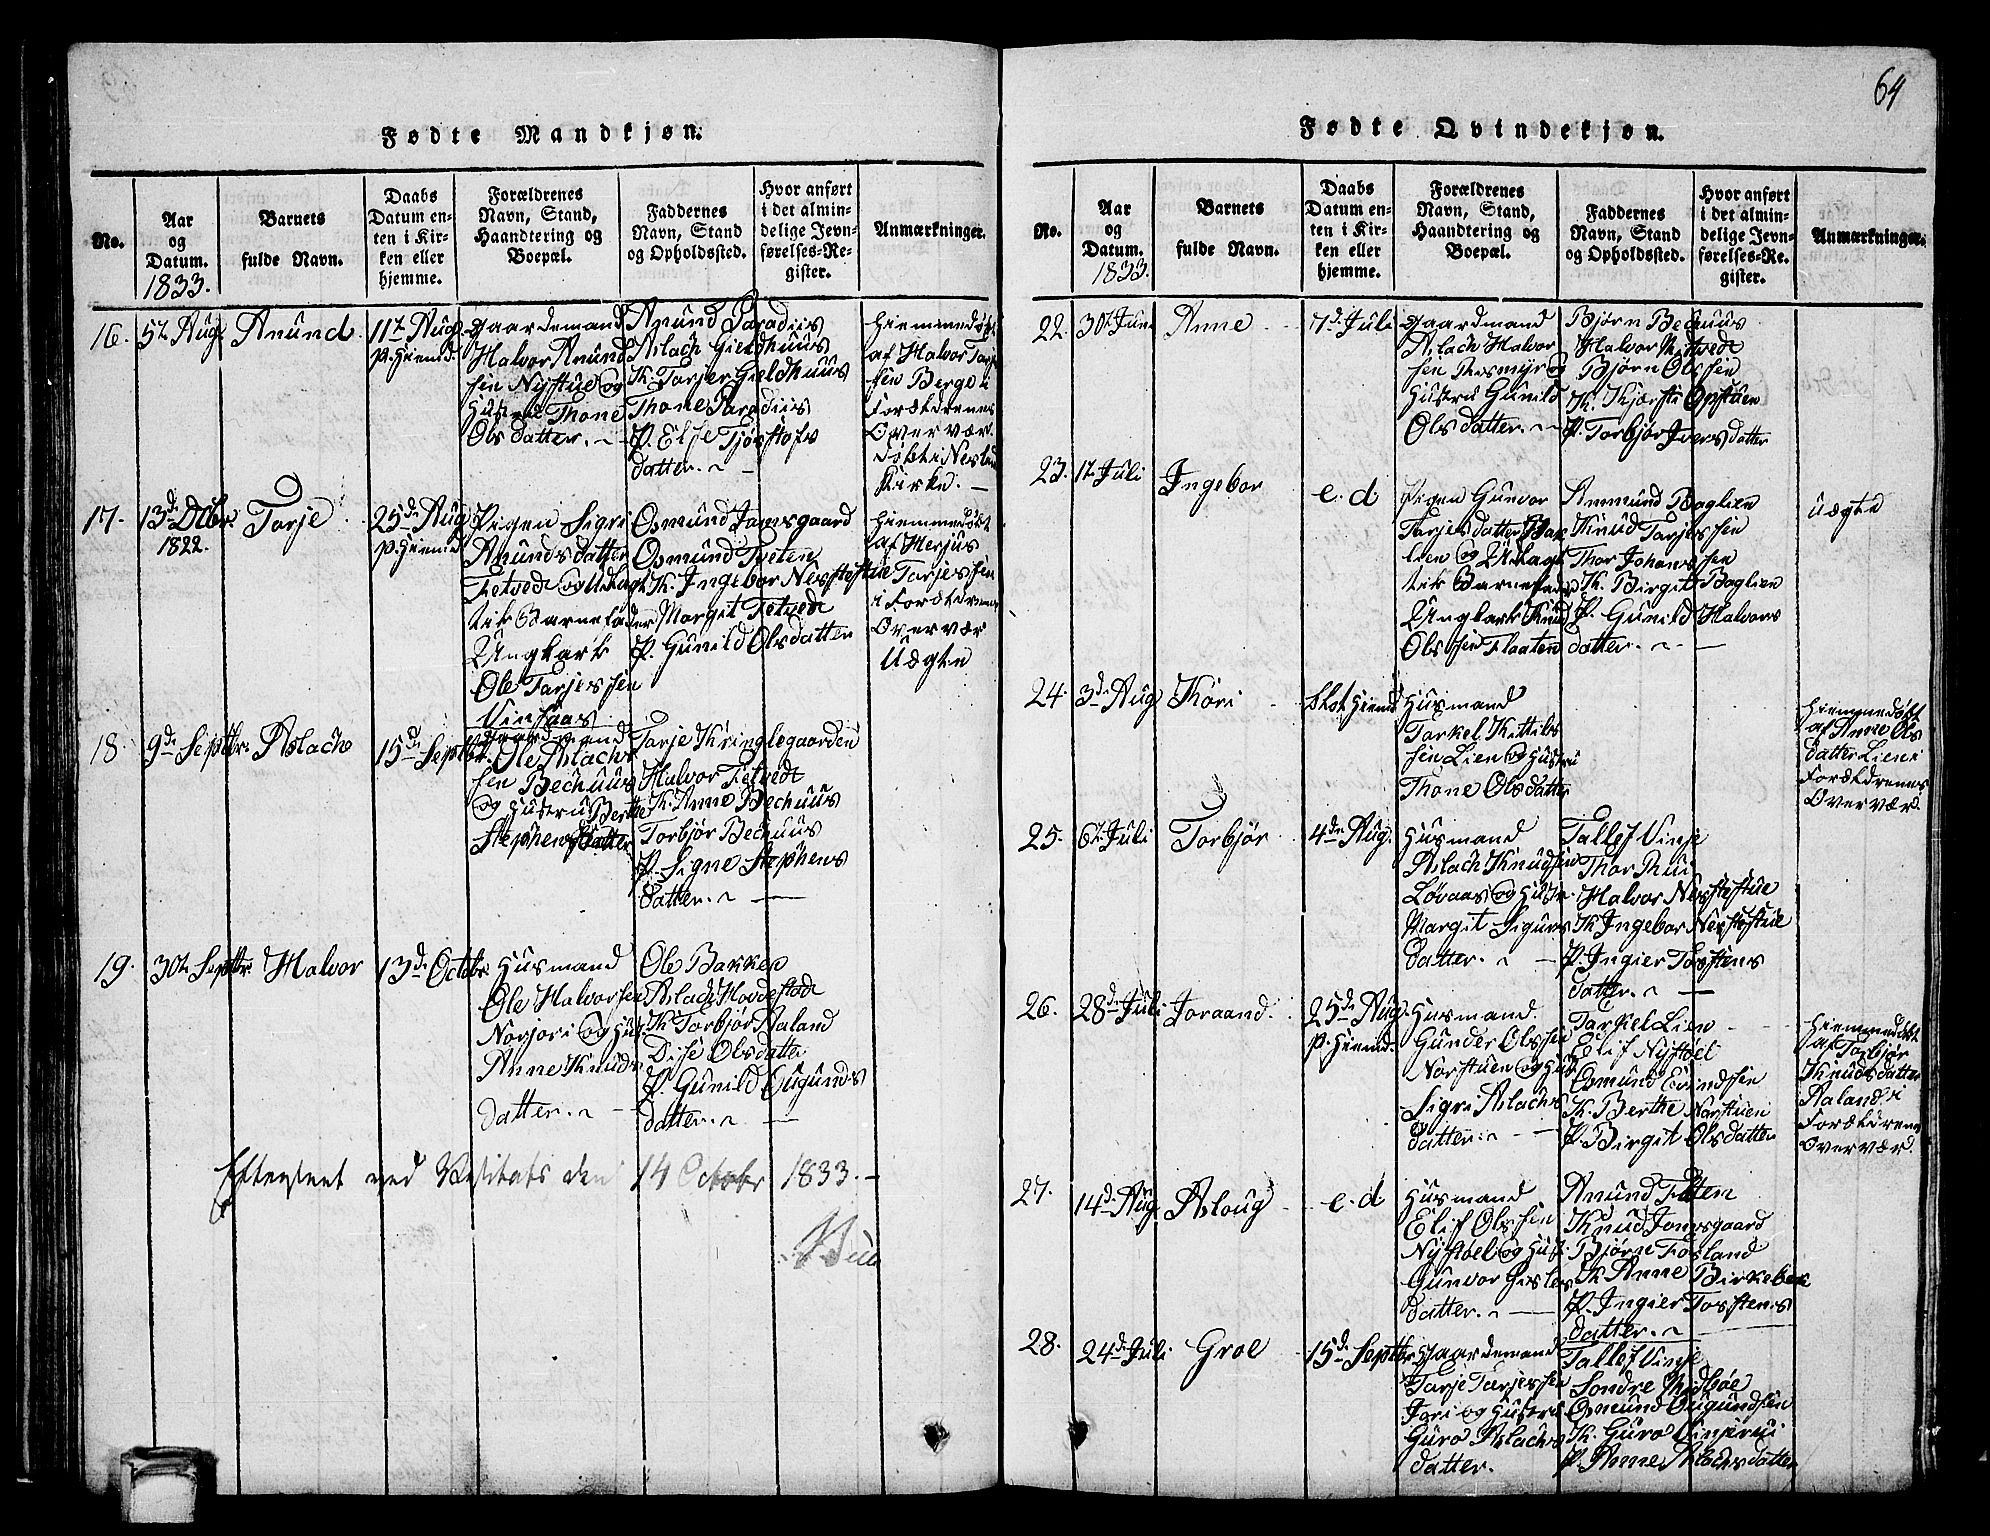 64
Fødte Mandkjøn.
No.
Aar
og
Datum.
1833.
Barnets
fulde Navn.
Daabs
Datum en-
ten i Kir-
ken eller
hjemme.
Forældrenes
Navn, Stand,
Haandtering og
Boepæl.
Faddernes
Navn, Stand
og Opholdssted.
Hvor anført
i det almin-
delige Jevn-
førelses-Re-
gister.
Anmærkninger.
16.
5te Aug
Anund
11te Aug
p. Hiemd
Gaardemand
Halvor Anund
sen Nystue og
Hustrue Thone
Ols datter.
Anund Paradiis
Aslach Gieldhuus
K. Tarjer Gieldhuus
Thone Paradiis
P. Else Tjøstofs
datter.
Hiemmedøbt
af Halvor Tarje
sen Berge i
Forældrenes
Overvær.
Døbt i Nesland
Kirke.
17.
13de Dcbr.
1822.
Tarje
25de Aug
p. Hiemd
Pigen Sigri
Anundsdatter
Fetvedt og Udlagt
tik Barnefader
Ungkark
Ole Tarjessen
Vinsaas
Osmund Jamsgaard
Osmund Tveten
K. Ingebor Nerstestue
Margit Fetvedt
P. Gunild Olsdatter
Hiemmedøbt
af Herjus
Tarjessen
i Forældrenes
Overvær
Uægte
18
9de Septbr.
Aslach
15de Septbr.
Gaardmand
Ole Aslachs
sen Bechuus
og Hustru Berthe
Stephensdatter
Tarje Kringlegaarden
Halvor Fetvedt
K. Anne Bechuus
Torbjør Bechuus
P. Signe Stephens
datter.
19.
30te Septbr.
Halvor
13de Octobr.
Husmand
Ole Halvorsen
Norjori og Hust
Anne Knuds
datter.
Ole Bakken
Aslach Hovdestad
K. Torbjør Aaland
Dise Olsdatter
P. Gunild Ougunds
datter.
Efterseet ved Visitats den 14 Octobr 1833.
Fødte Qvindekjøn.
No.
Aar
og
Datum.
1833.
Barnets
fulde Navn.
Daabs
Datum en-
ten i Kir-
ken eller
hjemme.
Forældrenes
Navn, Stand,
Haandtering og
Boepæl.
Faddernes
Navn, Stand
og Opholdssted.
Hvor anført
i det almin-
delige Jevn-
førelses-Re-
gister.
Anmærkninger.
22.
30te Juni
Anne
7de Juli
Gaardmand
Aslach Halvor
sen Rosmyr og
Hustru Gunild
Ols datter.
Bjørn Bechuus
Halvor
Bjørn Olssen
K. Kjærsti Opstuen
P. Torbjør Iversdatter
23.
1te Juli
Ingebor
e. d
Pigen Gunvor
Tarjesdatter Bak
lien og Udlagt
tik Barnefader
Ungkark Knud
Olssen Flaaten
Ammund Boglien
Knud Tarjessen
Thor Johanssen
K. Birgit Boglien
P. Gunild Halvors
datter.
uægte
24.
3de Aug
Kari
Hiemd
Husmand
Tarkel Kittils
sen Lien og Hustru
Thone Olsdatter
Hiemmedøbt
af Anne Ols
datter Lien i
Forældrenes
Overvær.
25.
6te Juli
Torbjør
4de Aug.
Husmand
Aslach Knudsen
Løvaas og Hustr.
Margit Sigurs
datter.
Tallef Vinje
Thor Rui
Halvor Nerstestue
K. Ingebor Nerstestue
P. Ingier Torstens
datter.
26.
28de Juli
Joraand.
25de Aug.
p. Hiemd.
Husmand.
Gunder Olssen
Norstuen og Hus
Sigri Aslachs
datter.
Tarkel Lien
Elif Nystøel
Osmund Evindsen
K. Berthe Norstuen
P. Birgit Olsdatter
Hiemmedøbt
af Torbjør
Knudsdatter
Aaland i
Forældrenes
Overvær.
27.
14de Aug
Asloug
e. d
Husmand
Elif Olssen
Nystøel og Hust.
Gunvor Gisles
datter.
Anund Tveten
Knud Jamsgaard
Bjørn Fosland
K. Anne Birkebek
P. Ingier Torstens
datter.
28.
24de Juli
Groe
15de Septbr
Gaardemand
Tarje Tarjessen
Jori og Hustru
Guro Aslachs
datter.
Tallef Vinje
Sondre Midbøe
Osmund Ougundsen
K. Guro Vinjerui
P. Anne Aslachsdatter